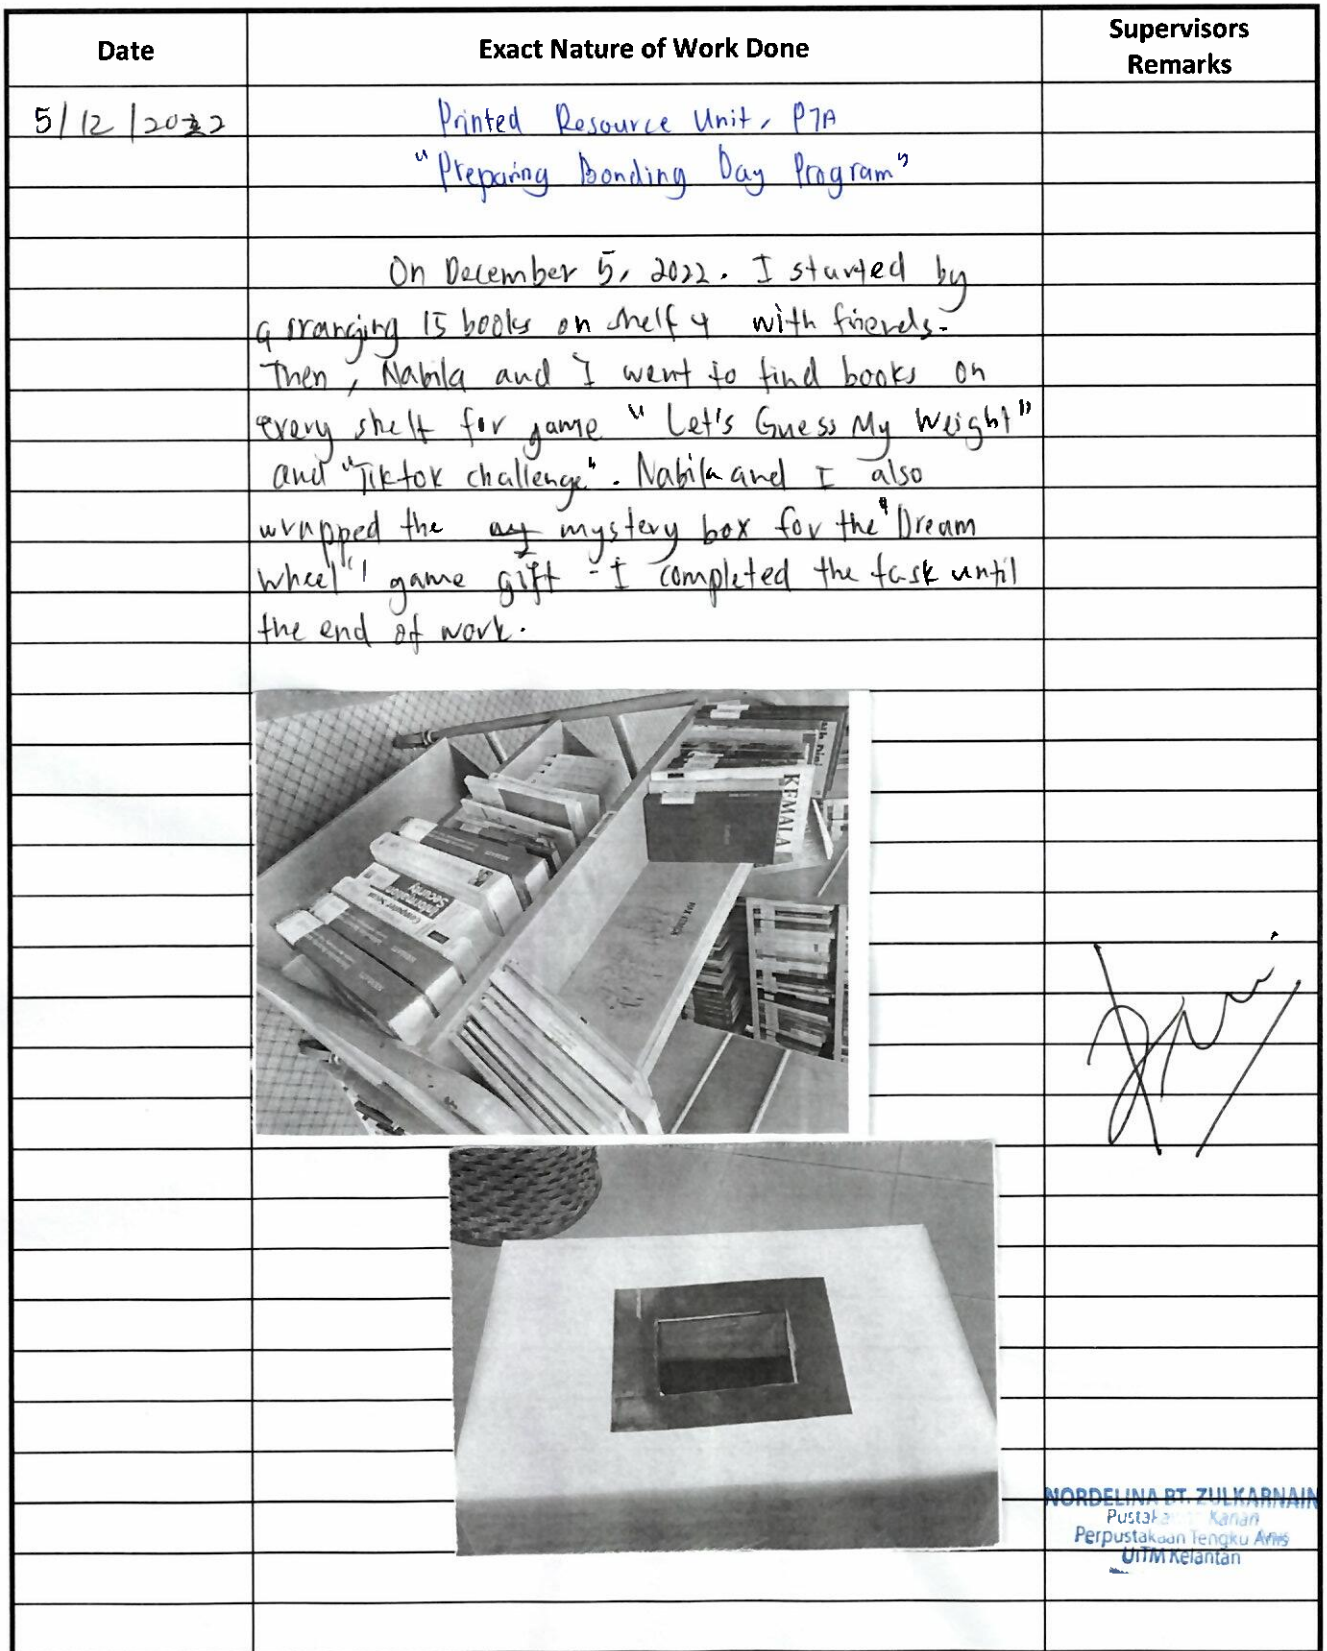 Date
Exact Nature of Work Done
Supervisors
Remarks
5/12/2022
Printed Resource Unit, PTA
"Preparing Bonding Day Program"
On December 5, 2022. I started by
arranging 15 books on shelf 4 with friends.
Then, Nabila and I went to find books on
every shelf for game "Let's Guess My Weight"
and "Tiktok challenge". Nabila and I also
wrapped the mystery box for the "Dream
wheel" game gift. I completed the task until
the end of work.
KEMALA
Computer
Information
Security
NORDELINA BT. ZULKARNAIN
Kanan
Perpustakaan Tengku Anis
UiTM Kelantan